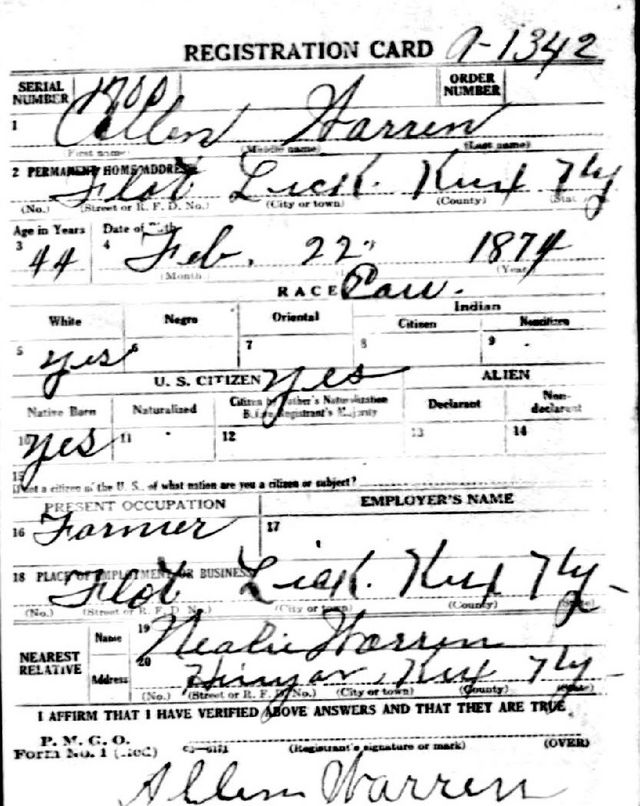 REGISTRATION CARD A-1342
SERIAL NUMBER 1700 ORDER NUMBER
1 Allen Warren
(First name) (Middle name) (Last name)
2 PERMANENT HOME ADDRESS
Flat Lick. Knx Ky
(No.) (Street or R. F. D. No.) (City or town) (County) (State)
Age in Years Date of Birth
3 44 4 Feb. 22 1874
(Month) (Year)
RACE Cau.
White Negro Oriental Indian
Citizen Noncitizen
5 yes 6 7 8 9
U. S. CITIZEN yes ALIEN
Native Born Naturalized Citizen by Father's Naturalization Before Registrant's Majority Declarant Non-declarant
10 yes 11 12 13 14
15
If not a citizen of the U. S., of what nation are you a citizen or subject?
PRESENT OCCUPATION EMPLOYER'S NAME
16 Farmer 17
18 PLACE OF EMPLOYMENT OR BUSINESS
Flat Lick. Knx Ky
(No.) (Street or R. F. D. No.) (City or town) (County) (State)
NEAREST RELATIVE
Name 19 Nealie Warren
Address 20 Hinyar, Knx Ky
(No.) (Street or R. F. D. No.) (City or town) (County) (State)
I AFFIRM THAT I HAVE VERIFIED ABOVE ANSWERS AND THAT THEY ARE TRUE
P. M. G. O.
Form No. 1 (Red) (Registrant's signature or mark) (OVER)
Allen Warren